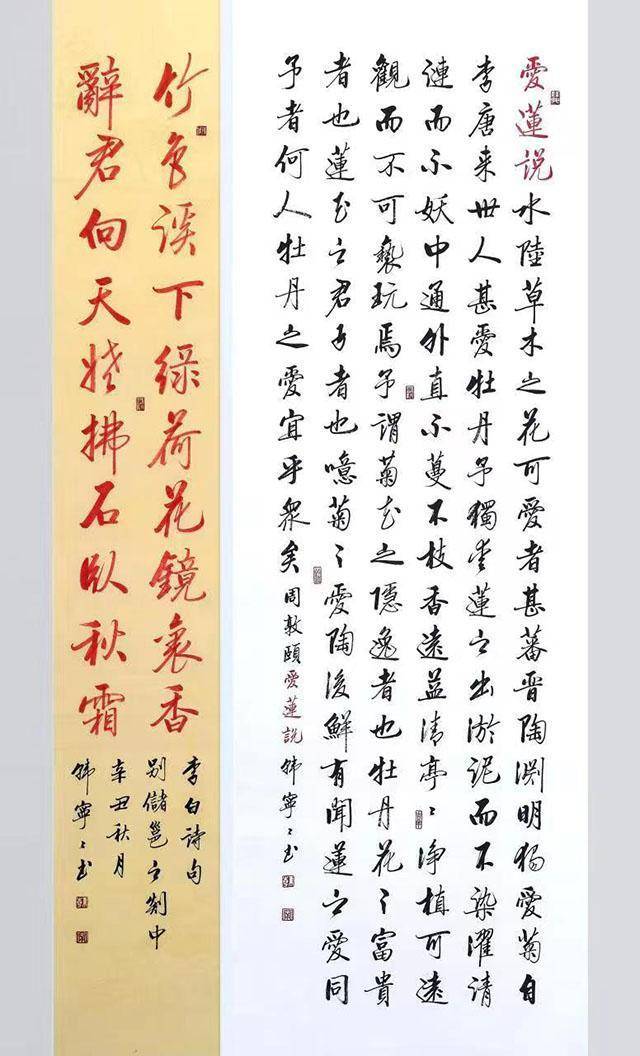 愛蓮説水陸草木之花可愛者甚蕃晋陶渊明独愛菊自
李唐来世人甚愛牡丹予獨爱蓮之出淤泥而不染濯清
漣而不妖中通外直不蔓不枝香遠益清亭〻浄植可遠
觀而不可褻玩焉予謂菊花之隱逸者也牡丹花之富貴
者也蓮花之君子者也噫菊之愛陶後鮮有聞蓮之愛同
予者何人牡丹之愛宜乎衆矣周敦頤愛蓮説韩寧〻书
竹色溪下绿荷花鏡裏香
辭君向天姥拂石臥秋霜
李白诗句
别儲邕之剡中
辛丑秋月
韩寧〻书